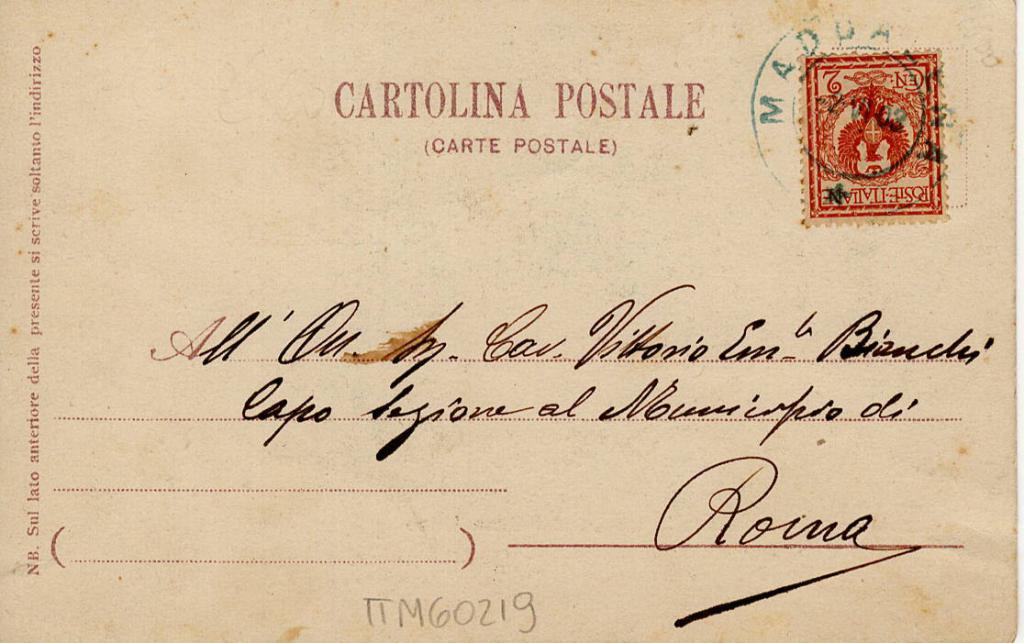 CARTOLINA POSTALE
(CARTE POSTALE)
MADDA
03
2 CEN 2
POSTE·ITALIANE
All' On. Sig. Cav. Vittorio Em.le Bianchi
Capo Sezione al Municipio di
Roma
( )
NB. Sul lato anteriore della presente si scrive soltanto l'indirizzo
TTM60219